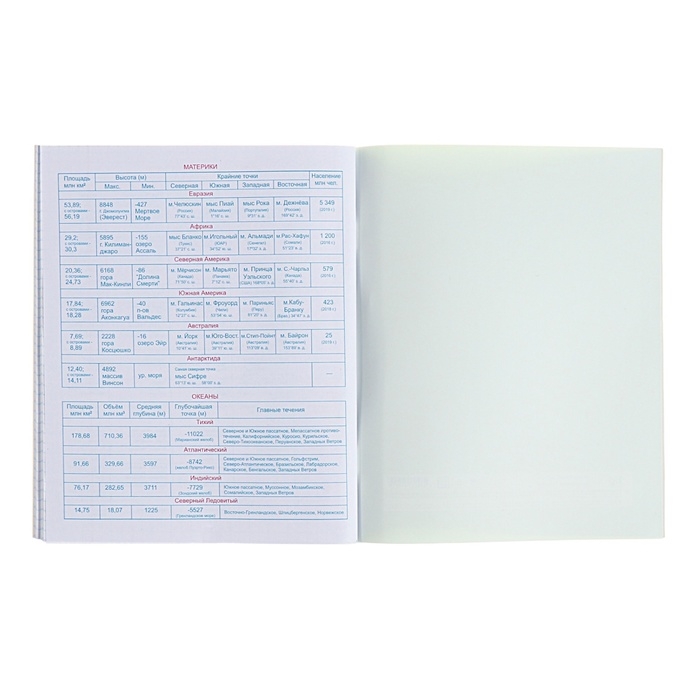 МАТЕРИКИ
Площадь млн км² Высота (м) Крайние точки Население млн чел.
Макс. Мин. Северная Южная Западная Восточная
Евразия
53,89; 8848 -427 м.Челюскин мыс Пиай мыс Рока м. Дежнёва 5 349
с островами - г. Джомолунгма Мертвое (Россия) (Малайзия) (Португалия) (Россия) (2019 г.)
56,19 (Эверест) Море
Африка
29,2; 5895 -155 мыс Бланко м.Игольный м. Альмади м.Рас-Хафун 1 200
с островами - г. Килиман- озеро (Тунис) (ЮАР) (Сенегал) (Сомали)
30,3 джаро Ассаль
Северная Америка
20,36; 6168 -86 м. Мёрчисон м. Марьято м. Принца м. С.-Чарльз 579
с островами - гора "Долина (Канада) (Панама) Уэльского (Канада)
24,73 Мак-Кинли Смерти"
Южная Америка
17,84; 6962 -40 м. Гальинас м. Фроуорд м. Париньяс м.Кабу- 423
с островами - гора п-ов (Колумбия) (Чили) (Перу) Бранку
18,28 Аконкагуа Вальдес
Австралия
7,69; 2228 -16 м. Йорк м.Юго-Вост. м.Стип-Пойнт м. Байрон 25
с островами - гора озеро Эйр (Австралия) (Австралия) (Австралия) (Австралия)
8,89 Косцюшко
Антарктида
12,40; 4892 ур. моря Самая северная точка —
с островами - массив мыс Сифре
14,11 Винсон
ОКЕАНЫ
Площадь Объём Средняя Глубочайшая Главные течения
млн км² млн км³ глубина (м) точка (м)
Тихий
178,68 710,36 3984 -11022 Северное и Южное пассатное, Межпассатное противо-
(Марианский желоб) течение, Калифорнийское, Куросио, Курильское,
Северо-Тихоокеанское, Перуанское, Западных Ветров
Атлантический
91,66 329,66 3597 -8742 Северное и Южное пассатное, Гольфстрим,
(желоб Пуэрто-Рико) Северо-Атлантическое, Бразильское, Лабрадорское,
Канарское, Бенгельское, Западных Ветров
Индийский
76,17 282,65 3711 -7729 Южное пассатное, Муссонное, Мозамбикское,
(Зондский желоб) Сомалийское, Западных Ветров
Северный Ледовитый
14,75 18,07 1225 -5527 Восточно-Гренландское, Шпицбергенское, Норвежское
(Гренландское море)